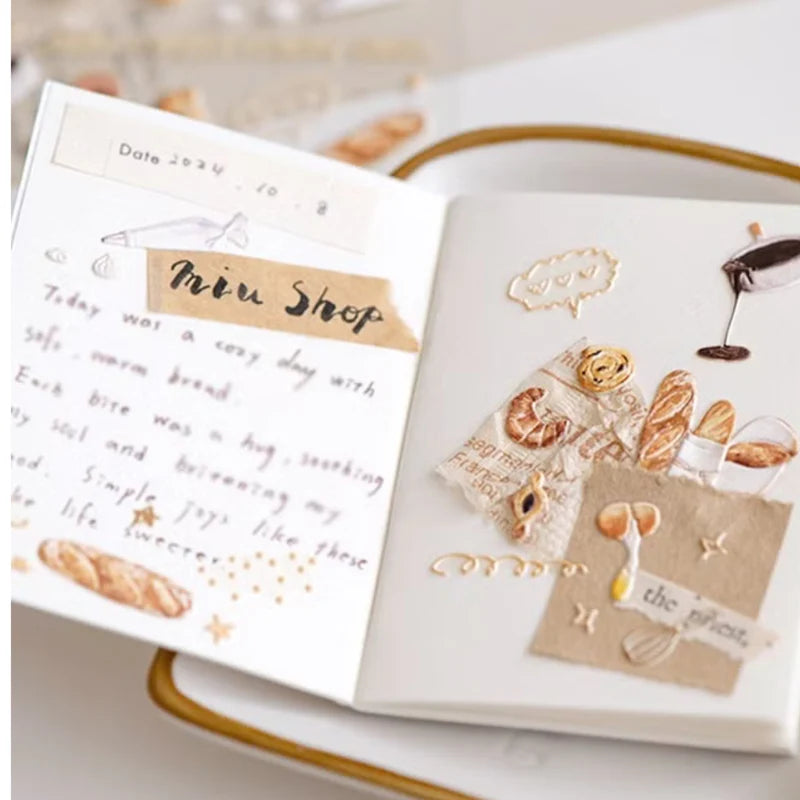 Date 2024 . 10 . 8
miu Shop
Today was a cozy day with
soft, warm bread.
Each bite was a hug, soothing
my soul and britening my
ood. Simple joys like these
ke life sweeter.
the priest.